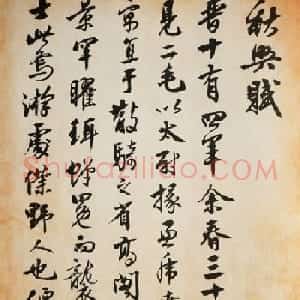 秋興賦
晉十有四年余春三十
見二毛以太尉掾兼虎
寓直于散騎之省高閣
景罕曜珥蟬冕而襲
士此焉游處僕野人也偃